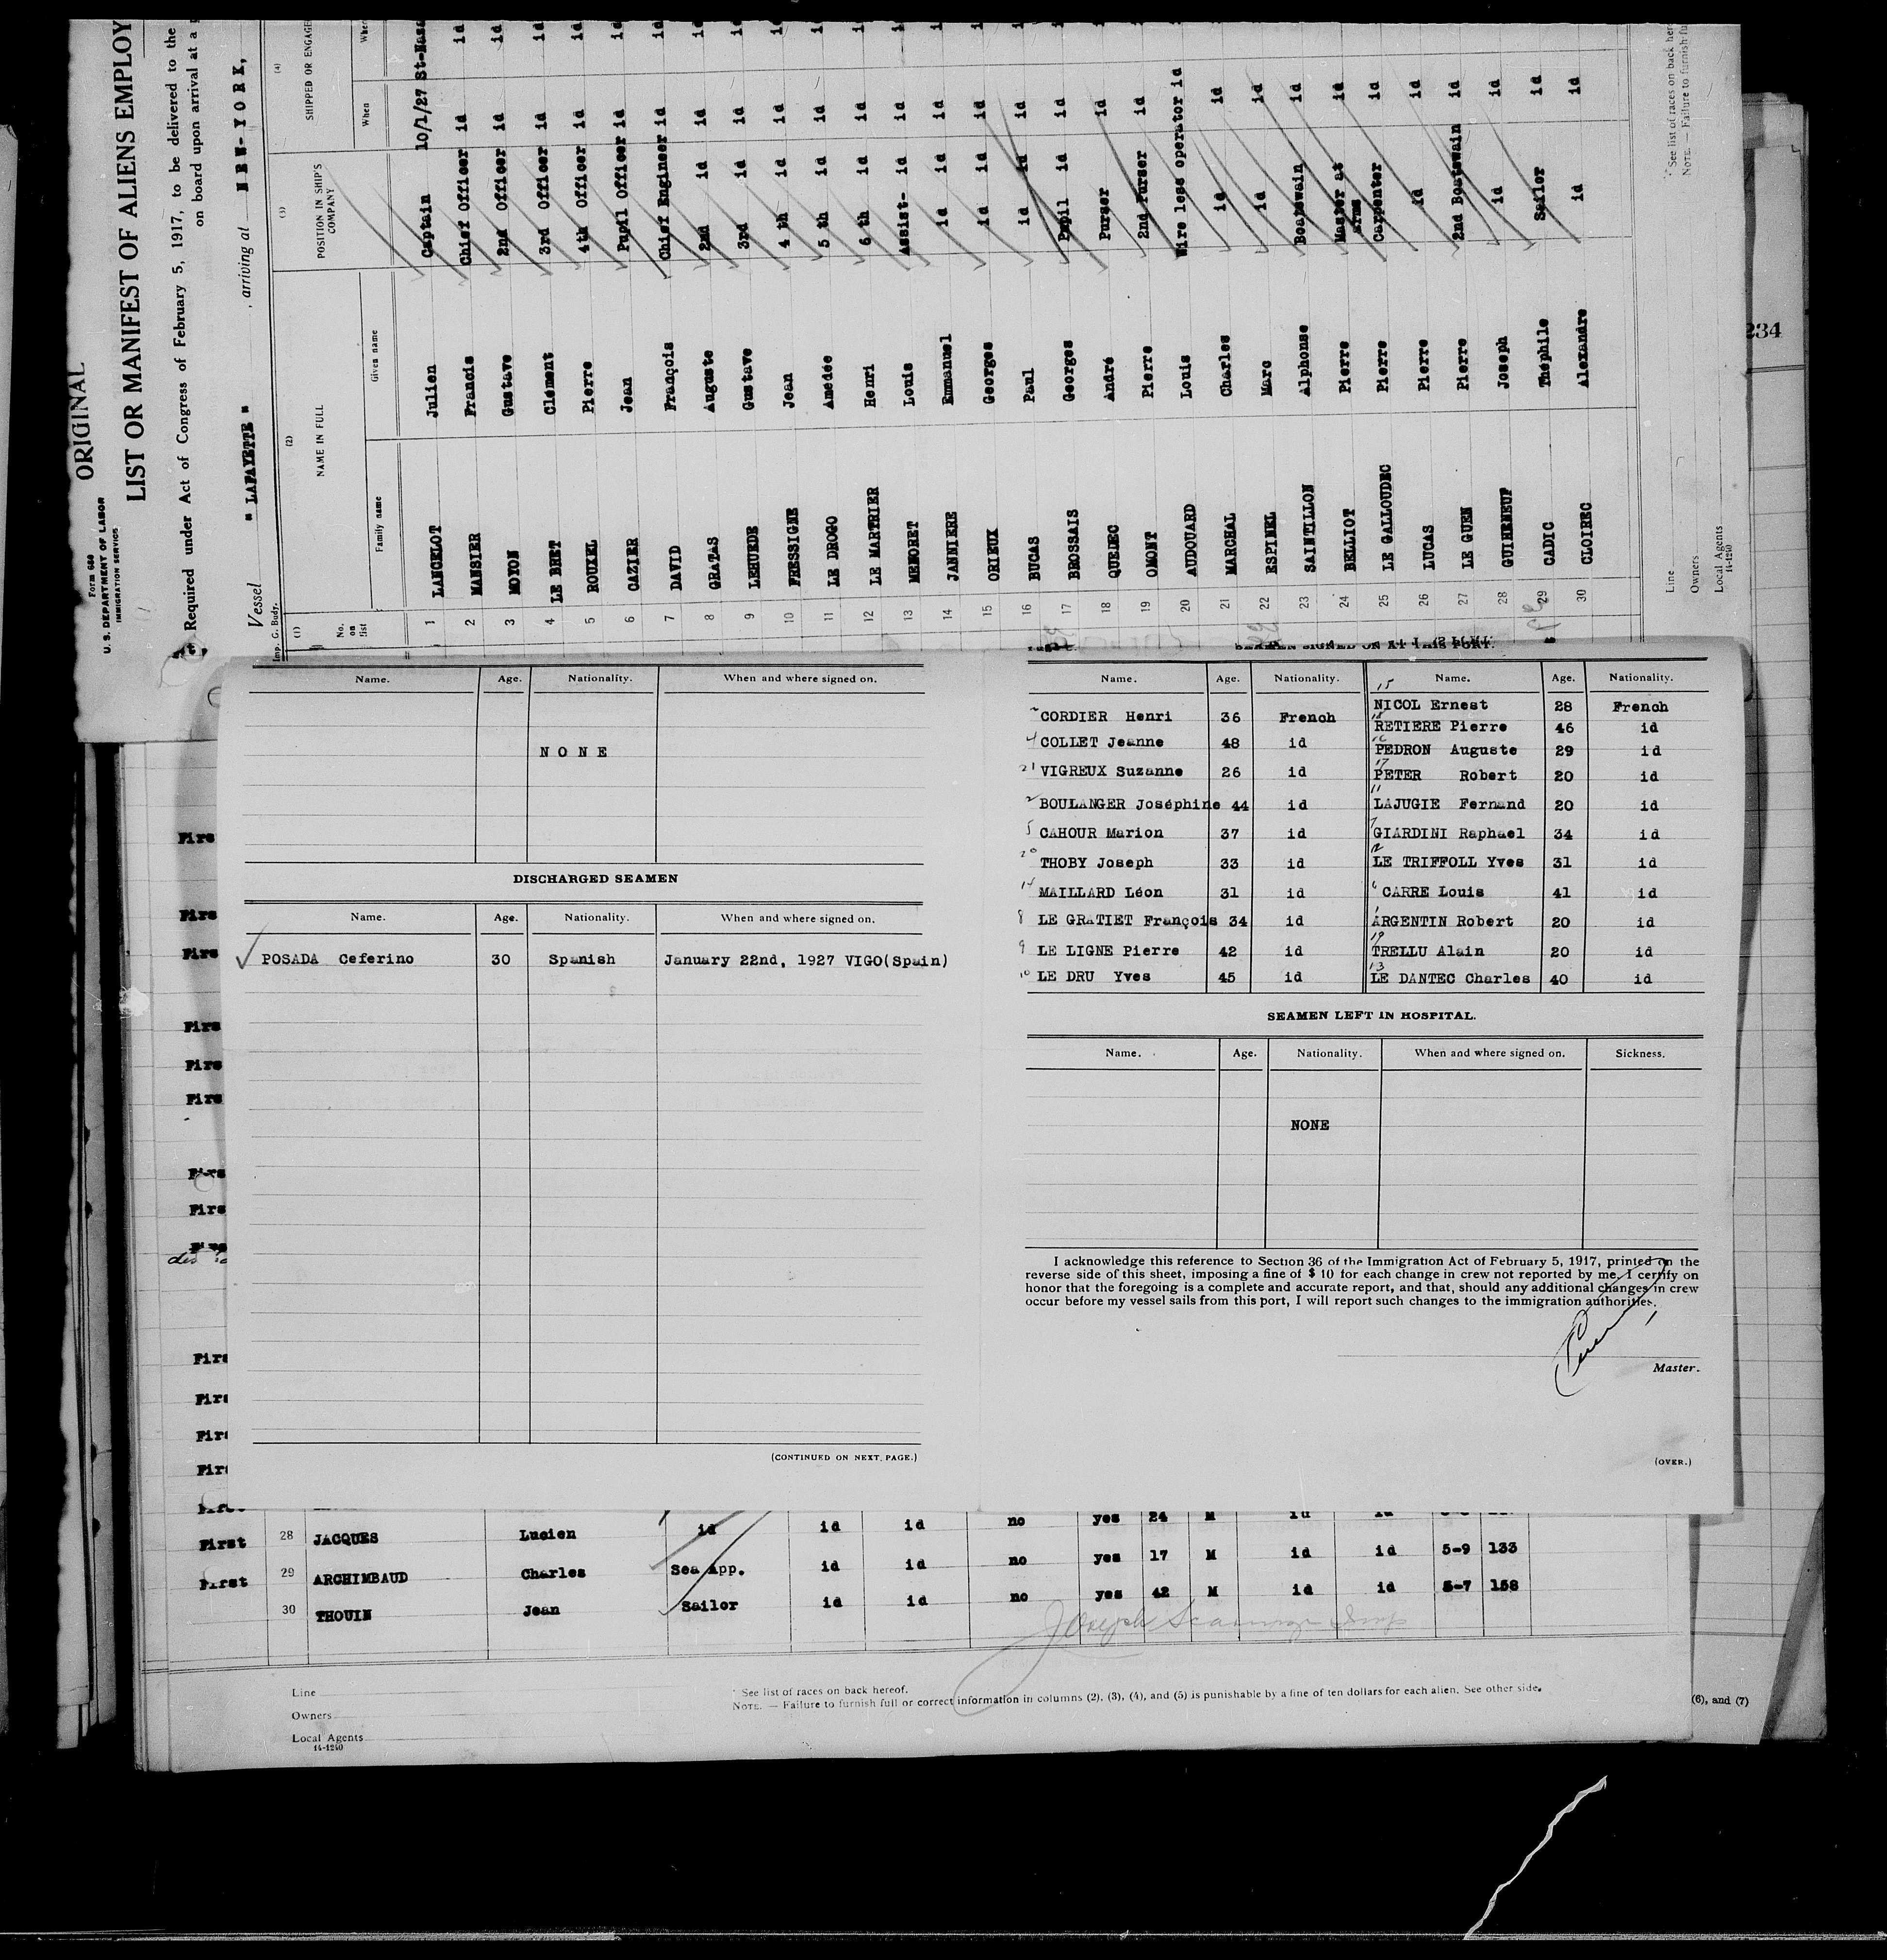 ORIGINAL
Form 680
U. S. DEPARTMENT OF LABOR
IMMIGRATION SERVICE
LIST OR MANIFEST OF ALIENS EMPLOY
Required under Act of Congress of February 5, 1917, to be delivered to the
on board upon arrival at a
Vessel " LAFAYETTE " , arriving at NEW-YORK,
Imp. G. Bady.
(1) (2) (3) (4)
No. on list NAME IN FULL POSITION IN SHIP'S COMPANY SHIPPED OR ENGAGE
Family name Given name When Whe
1 LANCELOT Julien Captain 10/1/27 St-Naz
2 MANSIER Francis Chief Officer id id
3 MOYON Gustave 2nd Officer id id
4 LE BRET Clément 3rd Officer id id
5 ROUXEL Pierre 4th Officer id id
6 CAZIER Jean Pupil Officer id id
7 DAVID François Chief Engineer id id
8 GRATAS Auguste 2nd id id id
9 LEHUEDE Gustave 3rd id id id
10 FRESSIGNE Jean 4 th id id id
11 LE DROGO Amédée 5 th id id id
12 LE MARTRIER Henri 6 th id id id
13 MENORET Louis Assist- id id id
14 JANNIERE Emmanuel id id id id
15 ORIEUX Georges id id id id
16 BUCAS Paul id id id id
17 BROSSAIS Georges Pupil id id
18 QUELEC André Purser id
19 OMONT Pierre 2nd Purser id
20 AUDOUARD Louis Wire less operator id
21 MARCHAL Charles id id
22 ESPINEL Marc id id
23 SAINTILLON Alphonse Boatswain id
24 BELLIOT Pierre Master at arms id
25 LE GALLOUDEC Pierre Carpenter id
26 LUCAS Pierre id id
27 LE GUEN Pierre 2nd Boatswain id
28 GUIHENEUF Joseph id id
29 CADIC Théphile Sailor id
30 CLOIREC Alexandre id id
Line
Owners
Local Agents
14-1240
* See list of races on back her
NOTE. — Failure to furnish fu
234
Name. Age. Nationality. When and where signed on.
NONE
DISCHARGED SEAMEN
Name. Age. Nationality. When and where signed on.
POSADA Ceferino 30 Spanish January 22nd, 1927 VIGO(Spain)
(CONTINUED ON NEXT PAGE.)
SEAMEN SIGNED ON AT THIS PORT.
Name. Age. Nationality. Name. Age. Nationality.
CORDIER Henri 36 French 15 NICOL Ernest 28 French
4 COLLET Jeanne 48 id 18 RETIERE Pierre 46 id
21 VIGREUX Suzanne 26 id 16 PEDRON Auguste 29 id
17 PETER Robert 20 id
2 BOULANGER Joséphine 44 id 11 LAJUGIE Fernand 20 id
5 CAHOUR Marion 37 id 7 GIARDINI Raphael 34 id
20 THOBY Joseph 33 id 12 LE TRIFFOLL Yves 31 id
14 MAILLARD Léon 31 id 6 CARRE Louis 41 id
8 LE GRATIET François 34 id 1 ARGENTIN Robert 20 id
9 LE LIGNE Pierre 42 id 19 TRELLU Alain 20 id
10 LE DRU Yves 45 id 13 LE DANTEC Charles 40 id
SEAMEN LEFT IN HOSPITAL.
Name. Age. Nationality. When and where signed on. Sickness.
NONE
I acknowledge this reference to Section 36 of the Immigration Act of February 5, 1917, printed on the
reverse side of this sheet, imposing a fine of $ 10 for each change in crew not reported by me. I certify on
honor that the foregoing is a complete and accurate report, and that, should any additional changes in crew
occur before my vessel sails from this port, I will report such changes to the immigration authorities.
Master.
(OVER.)
First 28 JACQUES Lucien id id id no yes 24 M id
First 29 ARCHIMBAUD Charles Sea App. id id no yes 17 M id id 5-9 133
30 THOUIN Jean Sailor id id no yes 42 M id id 5-7 158
Line
Owners
Local Agents
14-1240
* See list of races on back hereof.
NOTE. — Failure to furnish full or correct information in columns (2), (3), (4), and (5) is punishable by a fine of ten dollars for each alien. See other side.
(6), and (7)